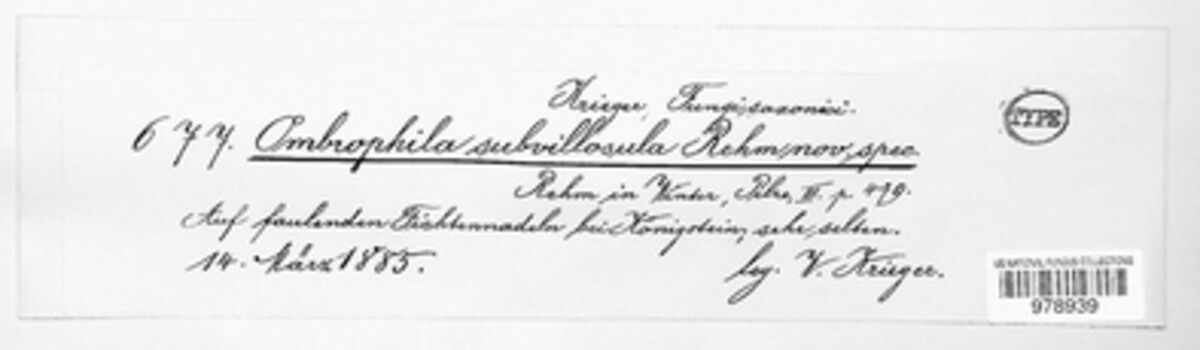 Krieger, Fungi saxonici.
TYPE
677. Ombrophila subvillosula Rehm, nov. spec.
Rehm in Winter, Pilze, III. p. 479.
Auf faulenden Fichtennadeln bei Königstein, sehr selten.
14. März 1885.
leg. W. Krieger.
US NATIONAL FUNGUS COLLECTIONS
978939